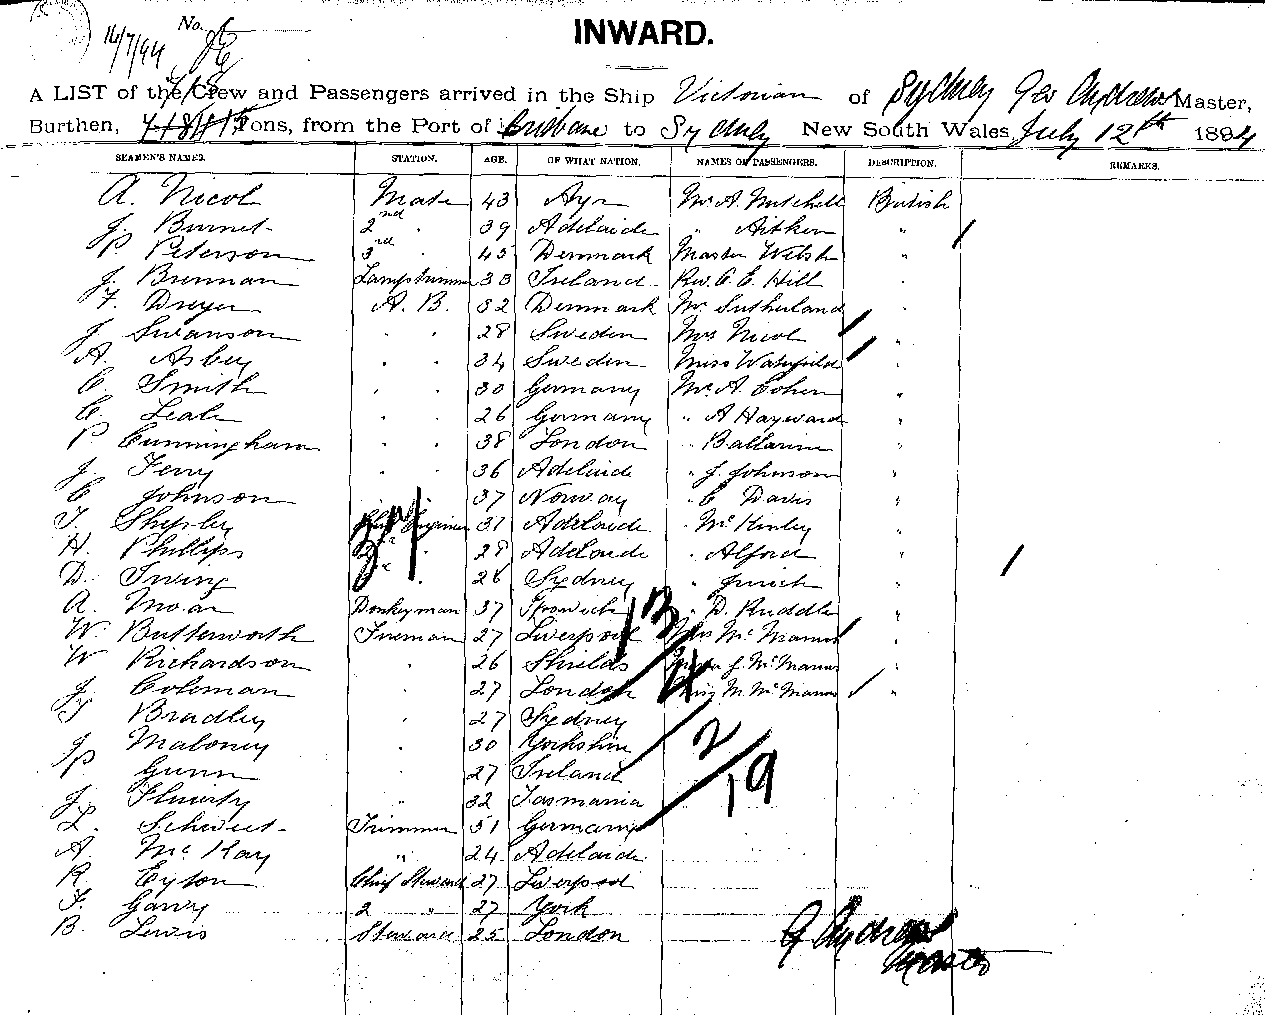 No.
16/7/94
INWARD.
A LIST of the Crew and Passengers arrived in the Ship Victorian of Sydney Geo Andrews Master,
Burthen, Tons, from the Port of Brisbane to Sydney New South Wales, July 12th 1894
SEAMEN'S NAMES. STATION. AGE. OF WHAT NATION. NAMES OF PASSENGERS. DESCRIPTION. REMARKS.
A. Nicol Mate 43 Ayr Mr A. Mitchell British
J. Burnet 2nd " 39 Adelaide " Aitken "
P. Peterson 3rd 45 Denmark Master Welsh "
J. Brennan Lamptrimmer 33 Ireland Rev. C. E. Hill "
F. Dreyer A. B. 32 Denmark Mr Sutherland "
J. Swanson " " 28 Sweden Mrs Nicol "
A. Asbey " " 34 Sweden Miss Waterfield "
C. Smith " " 30 Germany Mr A. Cohen "
C. Leah " " 26 Germany " A Hayward "
P Cunningham " " 38 London " Ballarine "
J. Terry " " 36 Adelaide " J. Johnson "
C Johnson " " 37 Norway " C Davis "
T. Shepley Chief Engineer 31 Adelaide " McKinley "
H. Phillips 2nd " 28 Adelaide " Alford "
D. Irving 3rd " 26 Sydney "
A. Moar Donkeyman 37 " D. Ruddle "
W. Butterworth Fireman 27 Liverpool Mrs McManus "
W Richardson " 26 Shields J. McManus "
J. Coleman " 27 London M. McManus "
Bradley " 27 Sydney
J. Maloney " 30 Yorkshire
P. Gunn 27 Ireland
J. " 32 Tasmania
L. Trimmer 51 Germany
A. McKay " 24 Adelaide
R. Eyton Chief Steward 27 Liverpool
F. Garry 2 " 27 York
B. Lewis Steward 25 London
13
4
2
19
G Andrews
Master